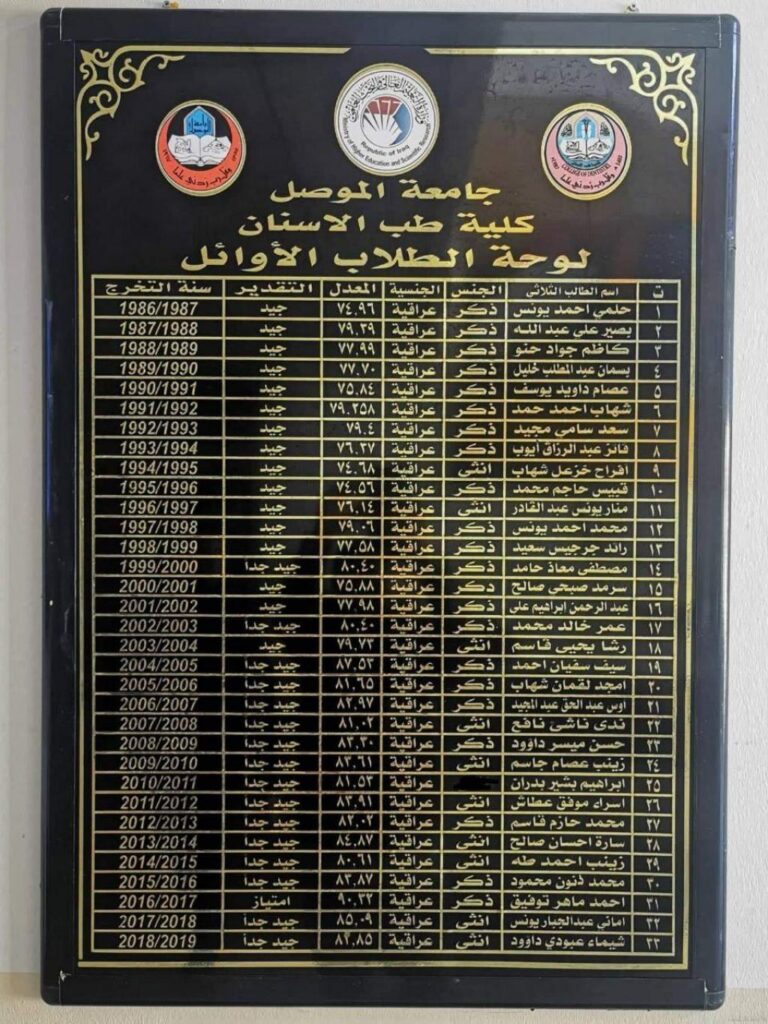 Republic of Iraq
Ministry of Higher Education and Scientific Research
COLLEGE OF DENTISTRY
وقل رب زدني علما
جامعة الموصل
كلية طب الاسنان
لوحة الطلاب الأوائل
ت اسم الطالب الثلاثي الجنس الجنسية المعدل التقدير سنة التخرج
١ حلمي احمد يونس ذكر عراقية ٧٤.٩٦ جيد 1986/1987
٢ بصير علي عبد الله ذكر عراقية ٧٩.٣٩ جيد 1987/1988
٣ كاظم جواد حنو ذكر عراقية ٧٧.٩٩ جيد 1988/1989
٤ بسمان عبد المطلب خليل ذكر عراقية ٧٧.٧٠ جيد 1989/1990
٥ عصام داويد يوسف ذكر عراقية ٧٥.٨٤ جيد 1990/1991
٦ شهاب احمد حمد ذكر عراقية ٧٩.٢٥٨ جيد 1991/1992
٧ سعد سامي مجيد ذكر عراقية ٧٩.٤ جيد 1992/1993
٨ فائز عبد الرزاق أيوب ذكر عراقية ٧٦.٣٧ جيد 1993/1994
٩ افراح خزعل شهاب انثى عراقية ٧٤.٦٨ جيد 1994/1995
١٠ قبيس حاجم محمد ذكر عراقية ٧٤.٥٦ جيد 1995/1996
١١ منار يونس عبد القادر انثى عراقية ٧٦.١٤ جيد 1996/1997
١٢ محمد احمد يونس ذكر عراقية ٧٩.٠٦ جيد 1997/1998
١٣ رائد جرجيس سعيد ذكر عراقية ٧٧.٥٨ جيد 1998/1999
١٤ مصطفى معاذ حامد ذكر عراقية ٨٠.٤٠ جيد جداً 1999/2000
١٥ سرمد صبحي صالح ذكر عراقية ٧٥.٨٨ جيد 2000/2001
١٦ عبد الرحمن ابراهيم علي ذكر عراقية ٧٧.٩٨ جيد 2001/2002
١٧ عمر خالد محمد ذكر عراقية ٨٠.٤٠ جيد جداً 2002/2003
١٨ رشا يحيى قاسم انثى عراقية ٧٩.٧٣ جيد 2003/2004
١٩ سيف سفيان احمد ذكر عراقية ٨٧.٥٣ جيد جداً 2004/2005
٢٠ امجد لقمان شهاب ذكر عراقية ٨١.٦٥ جيد جداً 2005/2006
٢١ اوس عبد الحق عبد المجيد ذكر عراقية ٨٢.٩٧ جيد جداً 2006/2007
٢٢ ندى ناشئ نافع انثى عراقية ٨١.٠٢ جيد جداً 2007/2008
٢٣ حسن ميسر داوود ذكر عراقية ٨٣.٣٠ جيد جداً 2008/2009
٢٤ زينب عصام جاسم انثى عراقية ٨٣.٦١ جيد جداً 2009/2010
٢٥ ابراهيم بشير بدران عراقية ٨١.٥٣ جيد جداً 2010/2011
٢٦ اسراء موفق عطاش انثى عراقية ٨٣.٩١ جيد جداً 2011/2012
٢٧ محمد حازم قاسم ذكر عراقية ٨٢.٠٢ جيد جداً 2012/2013
٢٨ سارة احسان صالح انثى عراقية ٨٤.٨٧ جيد جداً 2013/2014
٢٩ زينب احمد طه انثى عراقية ٨٠.٦١ جيد جداً 2014/2015
٣٠ محمد ذنون محمود ذكر عراقية ٨٣.٨٧ جيد جداً 2015/2016
٣١ احمد ماهر توفيق ذكر عراقية ٩٠.٣٢ امتياز 2016/2017
٣٢ اماني عبدالجبار يونس انثى عراقية ٨٥.٠٩ جيد جداً 2017/2018
٣٣ شيماء عبودي داوود انثى عراقية ٨٤.٨٥ جيد جداً 2018/2019